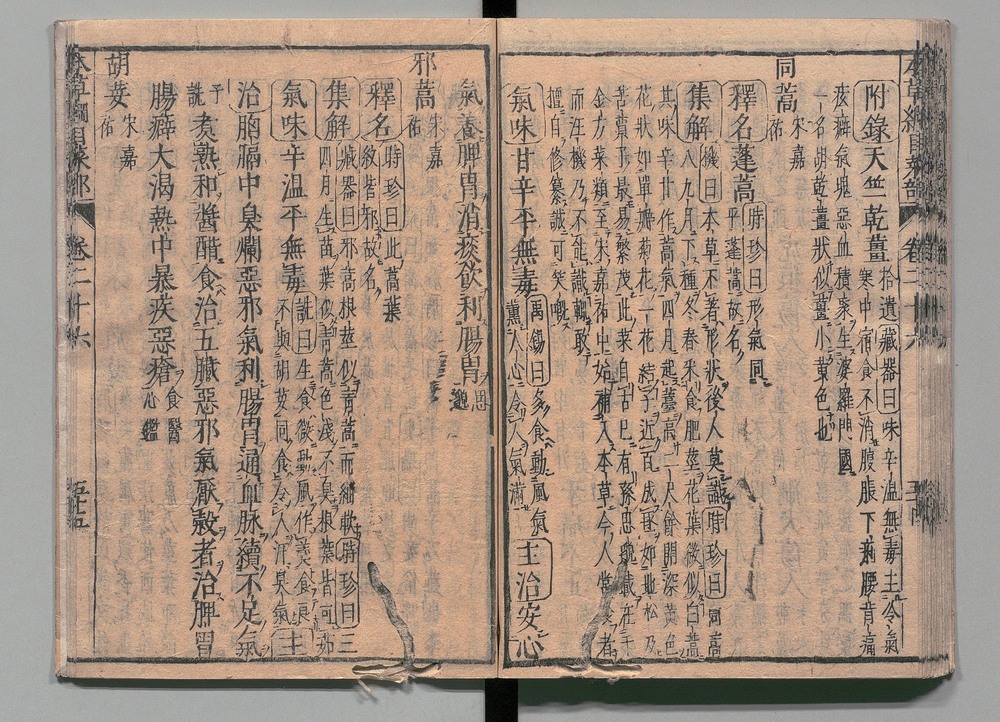 附錄天竺乾薑 拾遺 藏器曰味辛溫無毒主冷氣
寒中宿食不消腹脹下痢腰背痛
痃癖氣塊惡血積聚生婆羅門國
一名胡乾薑狀似薑小黃色也
同蒿 宋嘉祐
釋名蓬蒿 時珍曰形氣同
乎蓬蒿故名
集解 機曰本草不著形狀後人莫識時珍曰同蒿
八九月下種冬春采食肥莖花葉微似白蒿
其味辛甘作蒿氣四月起薹高二尺餘開深黃色
花狀如單瓣菊花一花結子近百成毬如地松及
苦蕒子最易繁茂此菜自古已有孫思邈載在千
金方菜類至宋嘉祐中始補入本草今人常食者
而汪機乃不能識輒敢
擅自修纂誠可笑慨
氣味甘辛平無毒 禹錫曰多食動風氣
薰人心令人氣滿 主治安心
氣養脾胃消痰飲利腸胃 思邈
邪蒿 宋嘉祐
釋名 時珍曰此蒿葉
紋皆邪故名
集解 藏器曰邪蒿根莖似青蒿而細軟時珍曰三
四月生苗葉似青蒿色淺不臭根葉皆可茹
氣味辛溫平無毒 詵曰生食微動風作羹食良
不與胡荽同食令人汗臭氣 主
治胸膈中臭爛惡邪氣利腸胃通血脉續不足氣
孟詵 煮熟和醬醋食治五臟惡邪氣厭穀者治脾胃
腸癖大渴熱中暴疾惡瘡 食醫心鑑
胡荽 宋嘉祐
本草綱目菜部 卷二十六 五十五